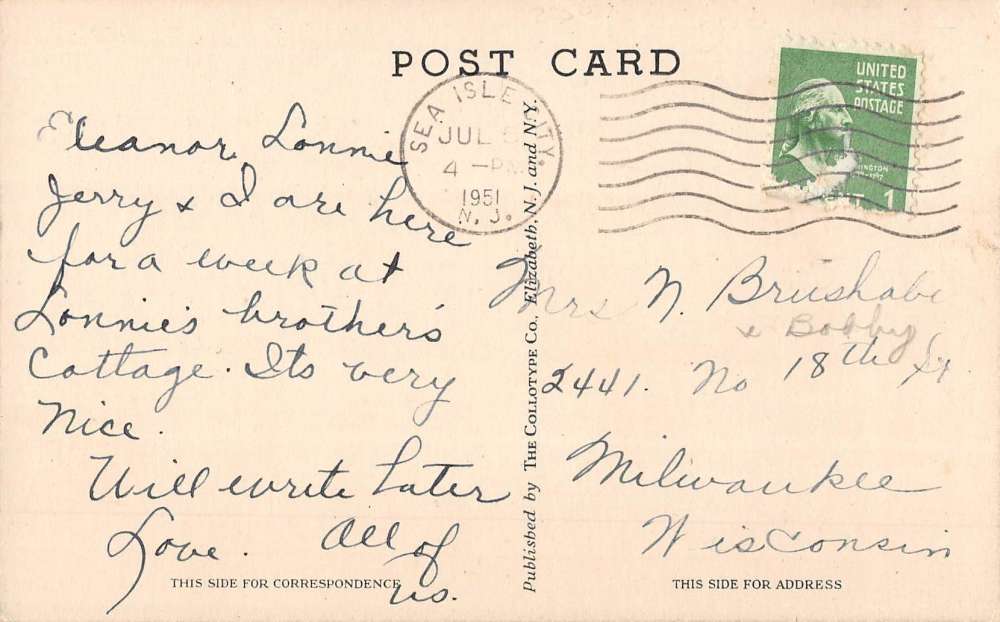 POST CARD
SEA ISLE CITY.
JUL
4 - PM
1951
N. J.
UNITED
STATES
POSTAGE
1
Eleanor, Lonnie
Jerry & I are here
for a week at
Lonnie's brother's
Cottage. Its very
Nice.
Will write later
Love. All of
us.
THIS SIDE FOR CORRESPONDENCE
Published by THE COLLOTYPE CO., Elizabeth, N. J. and N. Y.
Mrs N. Brushabe
& Bobby
2441. No 18th St
Milwaukee
Wisconsin
THIS SIDE FOR ADDRESS